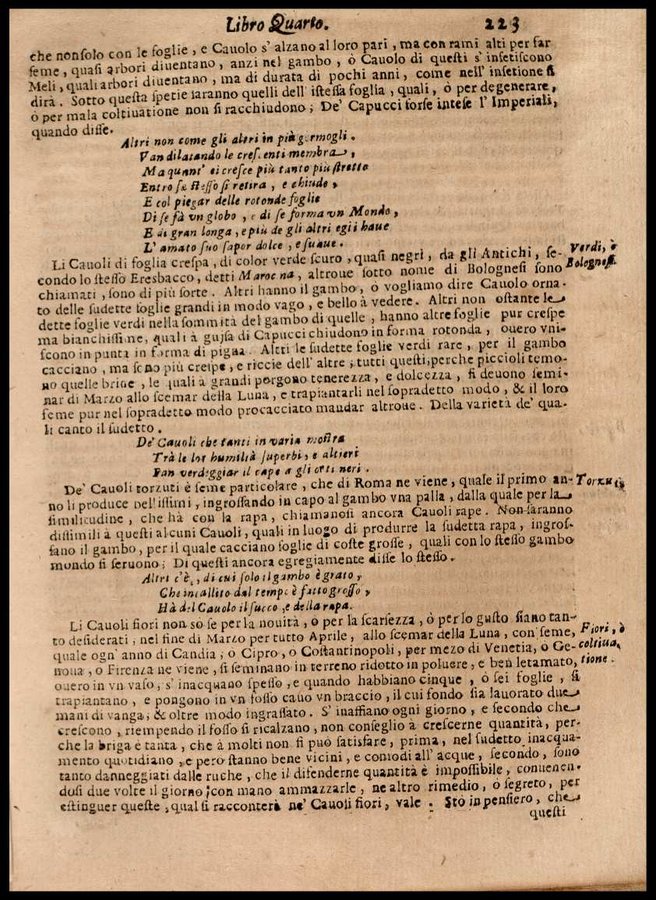 Libro Quarto. 223
che nonsolo con le foglie, e Cauolo s'alzano al loro pari, ma con rami alti per far
seme, quasi arbori diuentano, anzi nel gambo, ò Cauolo di questi s'insetiscono
Meli, quali arbori diuentano, ma di durata di pochi anni, come nell'insetione si
dirà. Sotto questa spetie saranno quelli dell'istessa foglia, quali, ò per degenerare,
ò per mala coltiuatione non si racchiudono; De' Capucci forse intese l'Imperiali,
quando disse.
Altri non come gli altri in più germogli.
Van dilatando le crescenti membra,
Ma quant' ei cresce più tanto più stretto
Entro se stesso si retira, e chiude,
E col piegar delle rotonde foglie
Di se fà vn globo, e di se forma vn Mondo,
E di gran longa, e più de gli altri egli haue
L'amato suo sapor dolce, e suaue.
Li Cauoli di foglia crespa, di color verde scuro, quasi negri, da gli Antichi, se- Verdi, ò
condo lo stesso Eresbacco, detti Marocna, altroue sotto nome di Bolognesi sono Bolognesi.
chiamati, sono di più sorte. Altri hanno il gambo, ò vogliamo dire Cauolo orna-
to delle sudette foglie grandi in modo vago, e bello à vedere. Altri non ostante le
dette foglie verdi nella sommità del gambo di quelle, hanno altre foglie pur crespe
ma bianchissime, quali à guisa di Capucci chiudono in forma rotonda, ouero vni-
scono in punta in forma di pigna. Altri le sudette foglie verdi rare, per il gambo
cacciano, ma seno più crespe, e riccie dell'altre; tutti questi, perche piccioli temo-
no quelle brine, le quali à grandi porgono tenerezza, e dolcezza, si deuono semi-
nar di Marzo allo scemar della Luna, e trapiantarli nel sopradetto modo, & il loro
seme pur nel sopradetto modo procacciato maudar altroue. Della varietà de' qua-
li cantò il sudetto.
De' Cauoli che tanti in varia mostra
Trà le lor humiltà superbi, e altieri
Fan verdeggiar il capo a gli orti neri.
De' Cauoli torzuti è seme particolare, che di Roma ne viene, quale il primo an- Torzuti,
no li produce bellissimi, ingrossando in capo al gambo vna palla, dalla quale per la
similitudine, che hà con la rapa, chiamansi ancora Cauoli rape. Non saranno
dissimili à questi alcuni Cauoli, quali in luogo di produrre la sudetta rapa, ingros-
sano il gambo, per il quale cacciano foglie di coste grosse, quali con lo stesso gambo
mondo si seruono; Di questi ancora egregiamente disse lo stesso.
Altri c'è, di cui solo il gambo è grato,
Che incallito dal tempo è fatto grosso,
Hà del Cauolo il succo, e della rapa.
Li Cauoli fiori non so se per la nouità, ò per la scarsezza, ò per lo gusto siano tan-
to desiderati, nel fine di Marzo per tutto Aprile, allo scemar della Luna, con seme, Fiori, ò
quale ogn'anno di Candia, ò Cipro, ò Costantinopoli, per mezo di Venetia, ò Ge- coltiua,
noua, o Firenza ne viene, si seminano in terreno ridotto in poluere, e ben letamato, tione.
ouero in vn vaso, s'inacquano spesso, e quando habbiano cinque, ò sei foglie, si
trapiantano, e pongono in vn fosso cauo vn braccio, il cui fondo sia lauorato due
mani di vanga, & oltre modo ingrassato. S'inaffiano ogni giorno, e secondo che
crescono, riempendo il fosso si ricalzano, non conseglio à crescerne quantità, per-
che la briga è tanta, che à molti non si può satisfare, prima, nel sudetto inacqua-
mento quotidiano, e però stanno bene vicini, e comodi all'acque, secondo, sono
tanto danneggiati dalle ruche, che il difenderne quantità è impossibile, conuenen-
dosi due volte il giorno, con mano ammazzarle, ne altro rimedio, ò segreto, per
estinguer queste, qual si racconterà ne' Cauoli fiori, vale. Stò in pensiero, che
questi